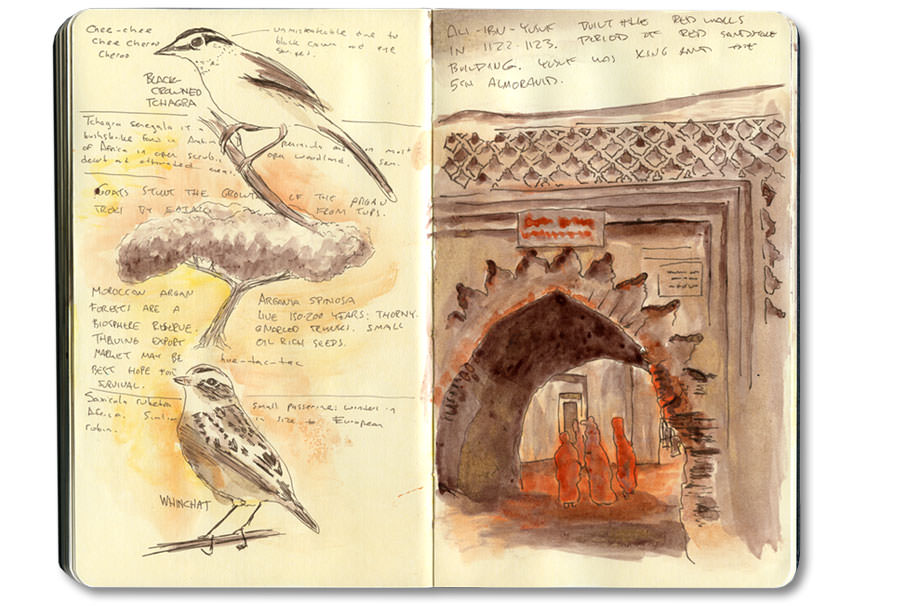 Chee-chee
Chee cheroo
Cheroo
unmistakeable due to
black crown and eye
BLACK-
CROWNED
TCHAGRA
Tchagra senegala is a
bushshrike found in Arabian peninsula and on most
of Africa in open scrub, open woodland, sem.
GOATS STUNT THE GROWTH OF THE ARGAN
TREES BY EATING FROM TOPS.
MOROCCAN ARGAN
FORESTS ARE A
BIOSPHERE RESERVE.
THRIVING EXPORT
MARKET MAY BE
BEST HOPE FOR
SURVIVAL.
ARGANIA SPINOSA
LIVE 150-200 YEARS; THORNY.
GNARLED TRUNKS. SMALL
OIL RICH SEEDS.
hue-tac-tac
Saxicola rubetra
Small passerine; winters in
Africa. Similar in size to European
robin.
WHINCHAT
ALI-IBN-YUSUF BUILT THE RED WALLS
IN 1122-1123. PERIOD OF RED SANDSTONE
BUILDING. YUSUF WAS KING AND THE
5TH ALMORAVID.